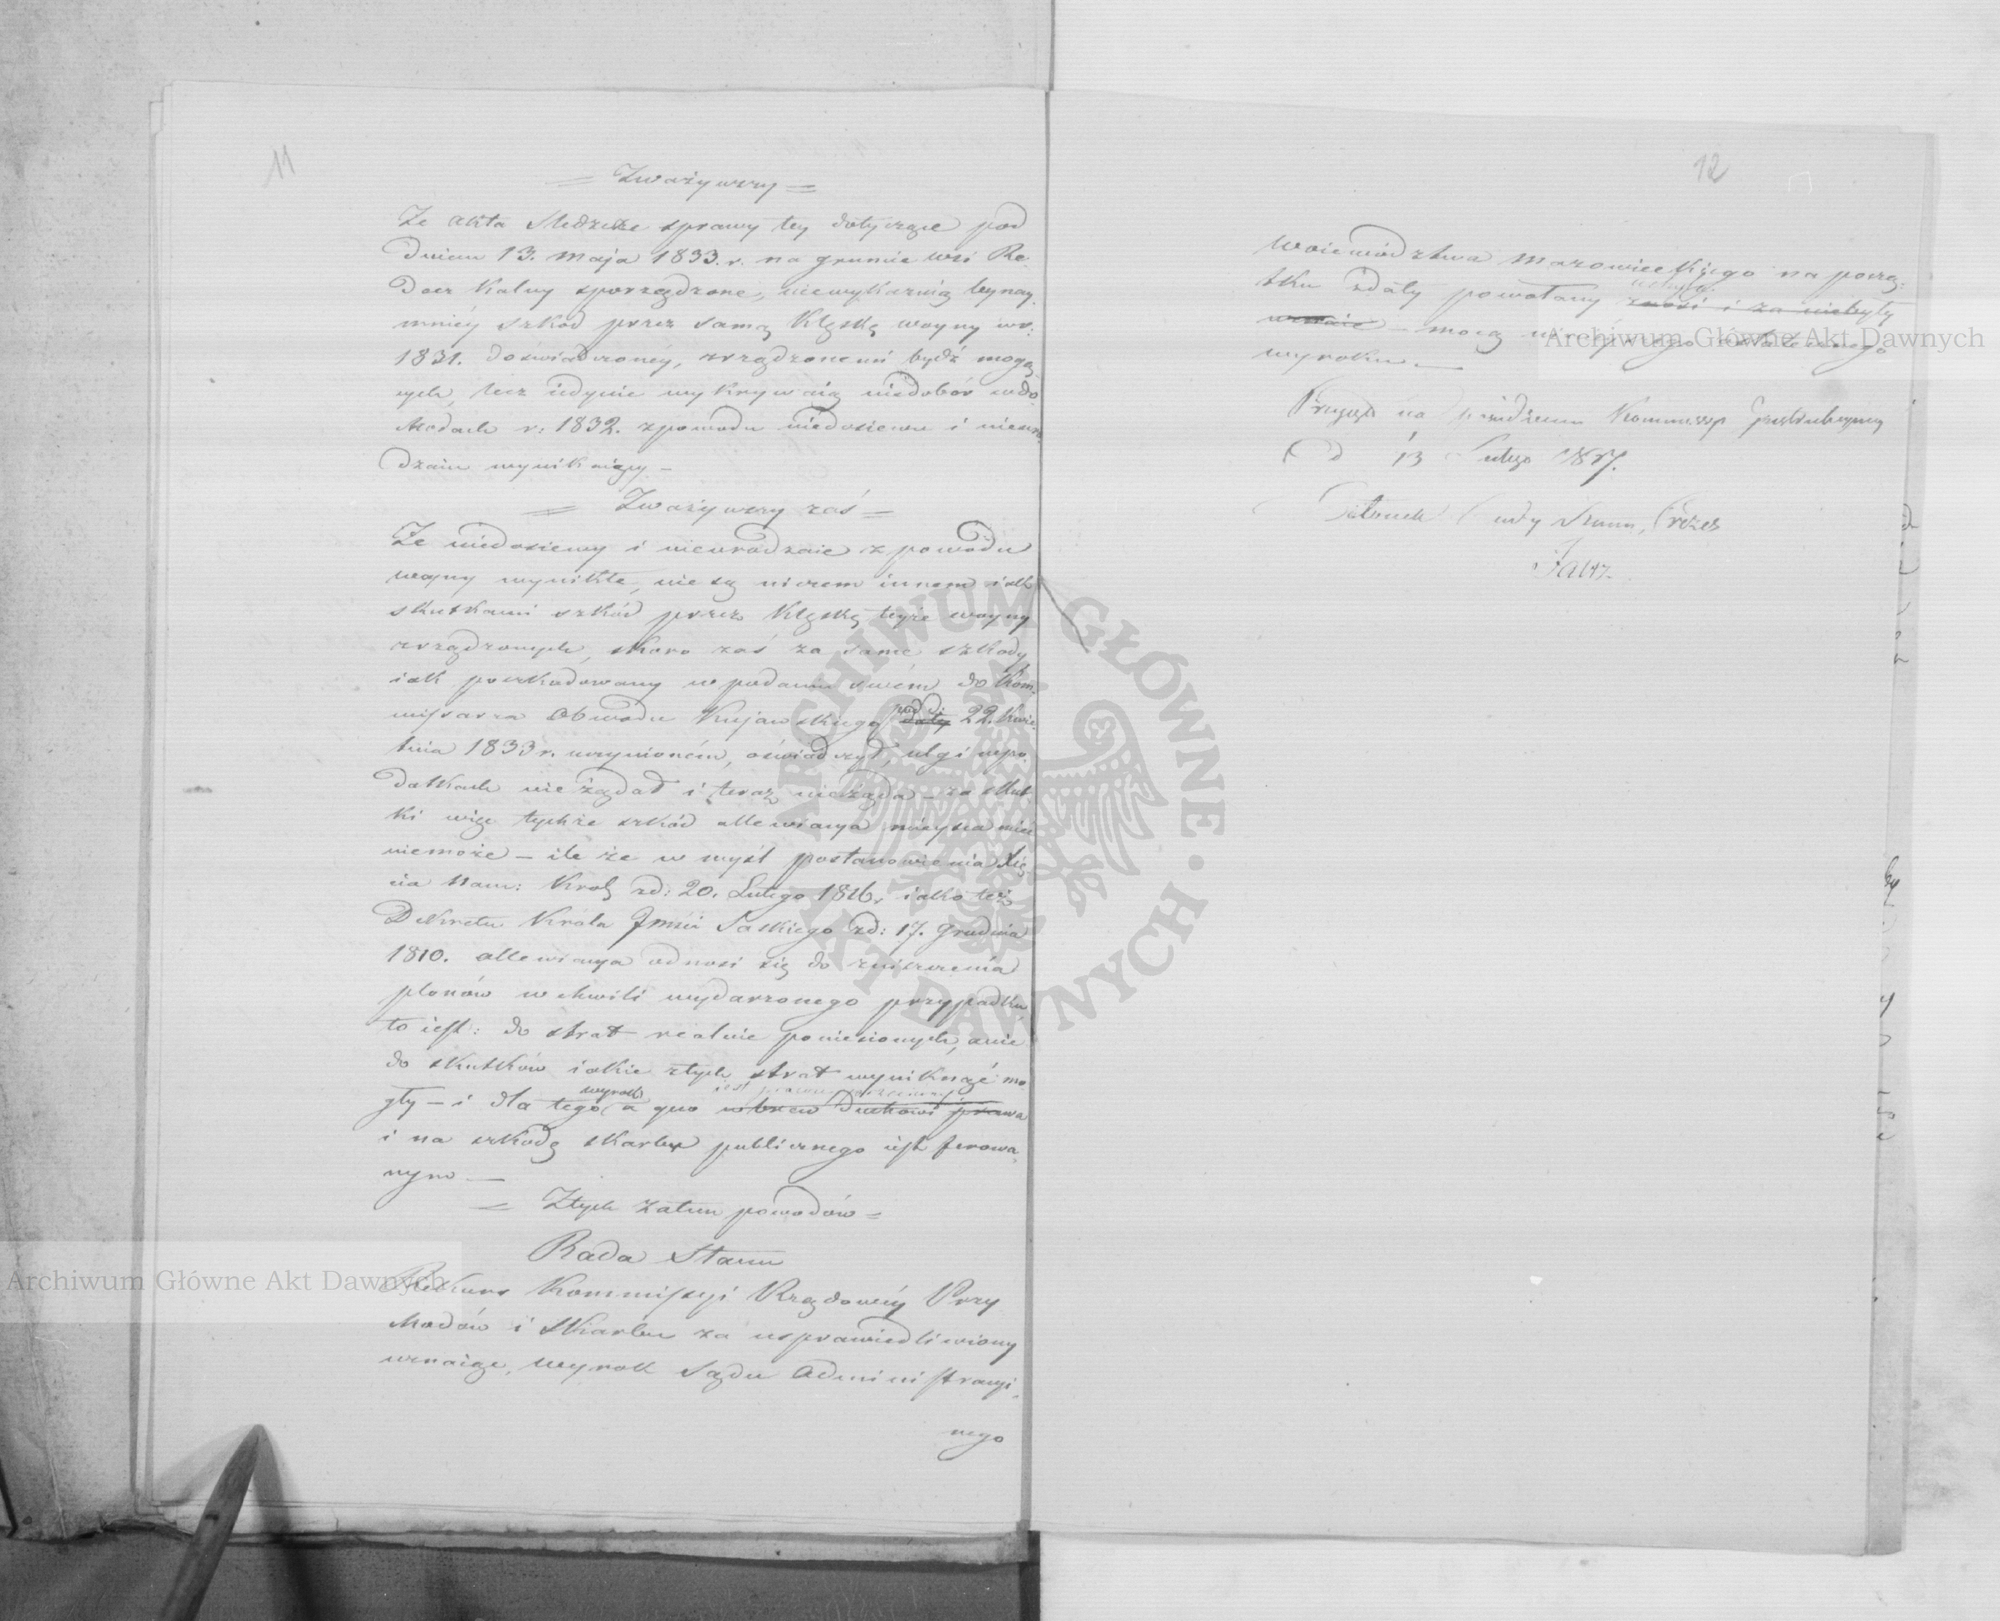 11
= Zważywszy =
Że akta śledcze sprawy tey dotyczące pod
dniem 13. Maja 1833. r. na gruncie wsi Re-
docz Kalny sporządzone, niewykazuią leynay-
mniéy szkód przez samą klęskę woyny w r:
1831. doświadczonéy, zrządzonemi bydź mogą-
cych, lecz iedynie wykrywaią niedobór w do-
chodach r: 1832. z powodu niedosiewu i nieuro-
dzaiu wynikaiący —
= Zważywszy zaś =
Że niedosiewy i nieurodzaie z powodu
woyny wynikłe, nie są niczem innem iak
skutkami szkód przez klęskę teyże woyny
zrządzonych, skoro zaś za same szkody
iak poszkodowany w podaniu swém do Kom-
missarza Obwodu Kujawskiego pod d: 22. Kwie-
tnia 1833 r. uczynioném, oświadczył, ulgi w po-
datkach nie żądał i teraz nieżąda — za skut-
ki więc tychże szkód allewiacya mieysca mieć
niemoże — ile że w myśl postanowienia Xię-
cia Nam: Król: z d: 20. Lutego 1816. iako też
Dekretu Króla Jmści Saskiego z d: 17. Grudnia
1810. allewiacya odnosi się do zniszczenia
plonów w chwili wydarzonego przypadku,
to iest: do strat realnie poniesionych, a nie
do skutków iakie z tych strat wyniknąć mo-
gły — i dla tego wyrok a quo wbrew duchowi prawa
i na szkodę skarbu publicznego iest ferowa-
nym —
= Z tych zatem powodów =
Rada Stanu
Rekurs Kommissyi Rządowéy Przy-
chodów i Skarbu za usprawiedliwiony
uznaiąc, wyrok Sądu Administracyi-
nego
12
Woiewództwa Mazowieckiego na począ-
tku zdaty powołany uchyla znosi i za niebyły
uznaie — mocą ninieyszego ostatecznego
wyroku. —
na posiedzeniu Kommissyi
d 13 Lutego
Radcy Stanu, Prezes
Archiwum Główne Akt Dawnych
Archiwum Główne Akt Dawnych
ARCHIWUM GŁÓWNE · AKT DAWNYCH